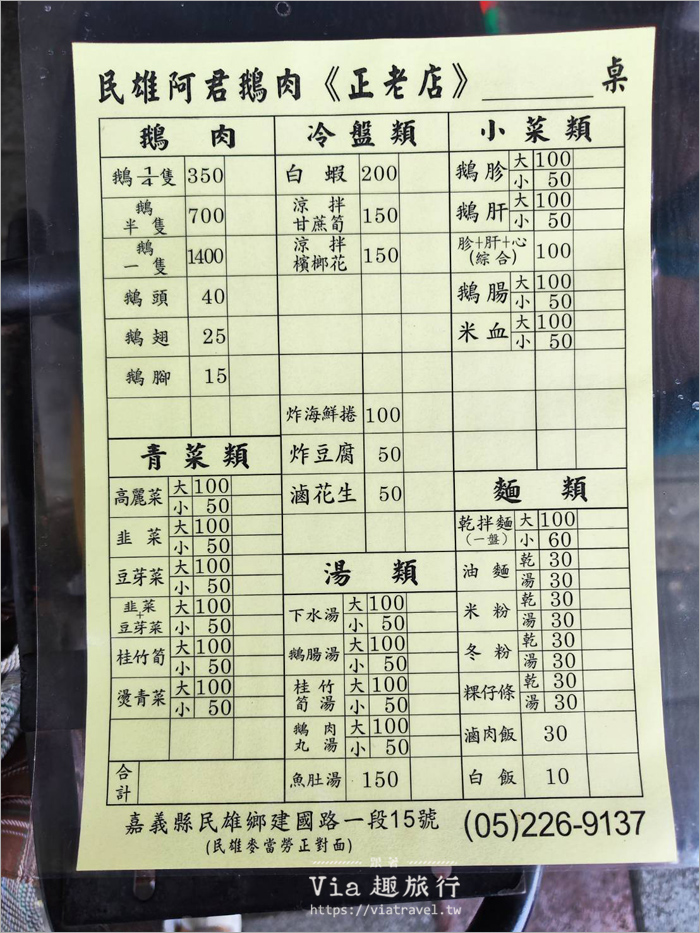 民雄阿君鵝肉《正老店》______桌
鵝肉
鵝1/4隻 350
鵝
半隻 700
鵝
一隻 1400
鵝頭 40
鵝翅 25
鵝腳 15
青菜類
高麗菜 大 100
小 50
韭菜 大 100
小 50
豆芽菜 大 100
小 50
韭菜
+
豆芽菜 大 100
小 50
桂竹筍 大 100
小 50
燙青菜 大 100
小 50
合計
冷盤類
白蝦 200
涼拌
甘蔗筍 150
涼拌
檳榔花 150
炸海鮮捲 100
炸豆腐 50
滷花生 50
湯類
下水湯 大 100
小 50
鵝腸湯 大 100
小 50
桂竹
筍湯 大 100
小 50
鵝肉
丸湯 大 100
小 50
魚肚湯 150
小菜類
鵝胗 大 100
小 50
鵝肝 大 100
小 50
胗+肝+心
(綜合) 100
鵝腸 大 100
小 50
米血 大 100
小 50
麵類
乾拌麵
(一盤) 大 100
小 60
油麵 乾 30
湯 30
米粉 乾 30
湯 30
冬粉 乾 30
湯 30
粿仔條 乾 30
湯 30
滷肉飯 30
白飯 10
嘉義縣民雄鄉建國路一段15號 (05)226-9137
(民雄麥當勞正對面)
跟著
Via趣旅行
https://viatravel.tw